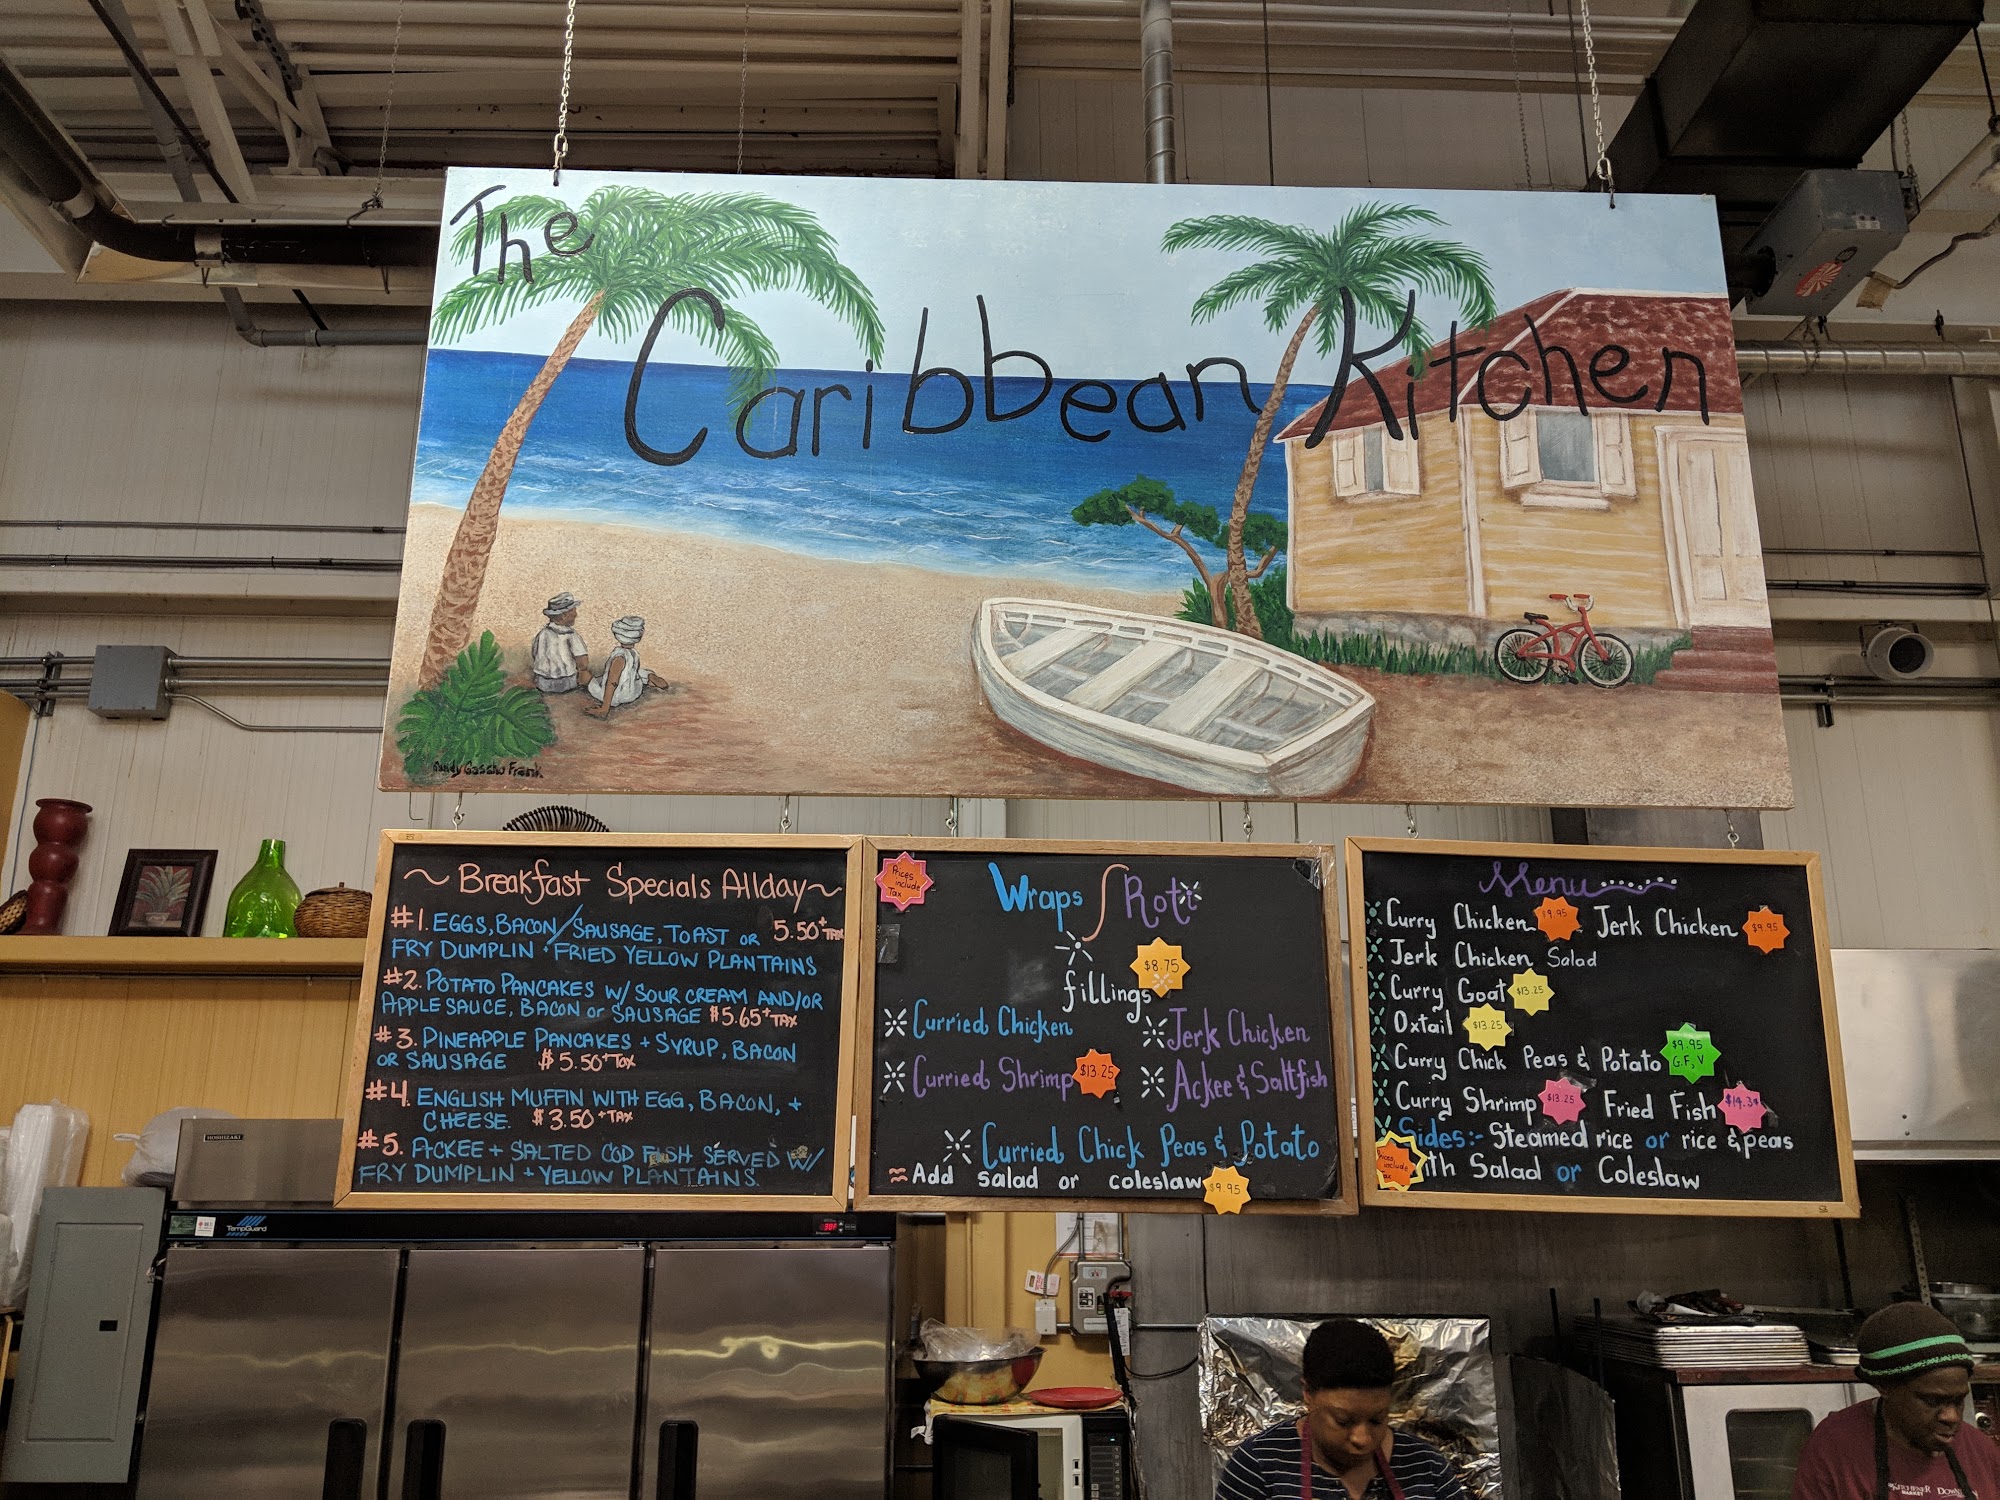 The
Caribbean Kitchen
~ Breakfast Specials Allday ~
#1. EGGS, BACON/SAUSAGE, TOAST OR 5.50 + TAX
FRY DUMPLIN + FRIED YELLOW PLANTAINS
#2. POTATO PANCAKES W/ SOUR CREAM AND/OR
APPLESAUCE, BACON or SAUSAGE $5.65 + TAX
#3. PINEAPPLE PANCAKES + SYRUP, BACON
OR SAUSAGE $5.50 + TAX
#4. ENGLISH MUFFIN WITH EGG, BACON, +
CHEESE. $3.50 + TAX
#5. ACKEE + SALTED COD FISH SERVED W/
FRY DUMPLIN + YELLOW PLANTAINS.
Prices
include
Tax
Wraps / Roti
$8.75
fillings
Curried Chicken
Jerk Chicken
Curried Shrimp $13.25
Ackee & Saltfish
Curried Chick Peas & Potato
Add salad or coleslaw $9.95
Menu
Curry Chicken $9.95 Jerk Chicken $9.95
Jerk Chicken Salad
Curry Goat $13.25
Oxtail $13.25
Curry Chick Peas & Potato $9.95
G.F, V
Curry Shrimp $13.25 Fried Fish
Sides:- Steamed rice or rice & peas
Prices
include
Tax
with Salad or Coleslaw
HOSHIZAKI
TempGuard